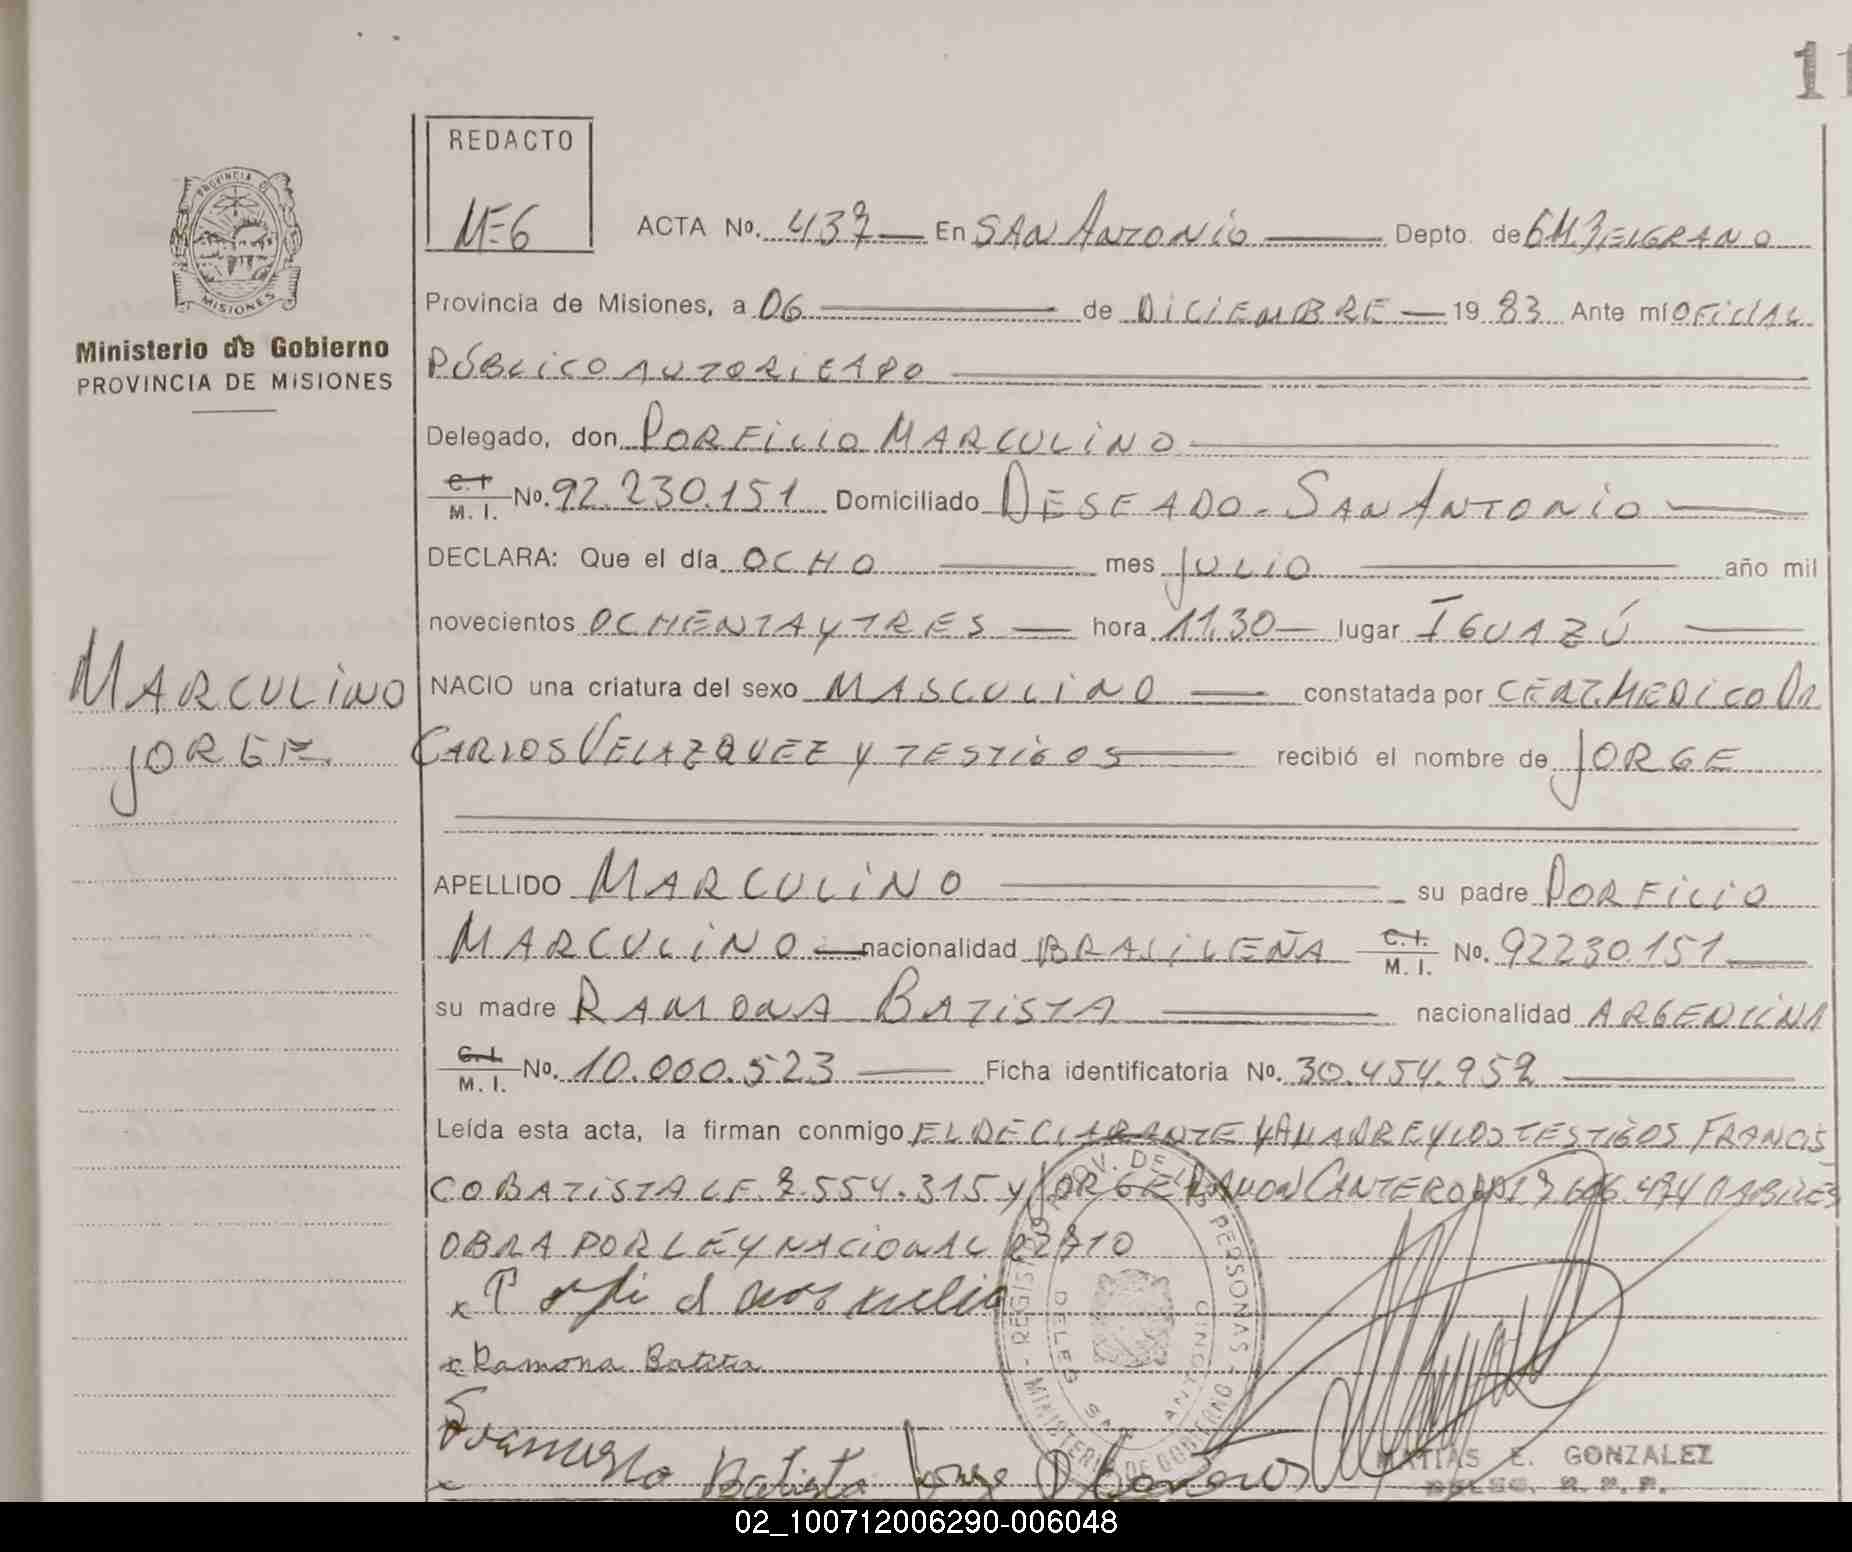 11
REDACTO
M=G
PROVINCIA DE
MISIONES
Ministerio de Gobierno
PROVINCIA DE MISIONES
ACTA No. 437 En SAN ANTONIO Depto. de GM BELGRANO
Provincia de Misiones, a 06 de DICIEMBRE 19 83 Ante mí OFICIAL
PÚBLICO AUTORIZADO
Delegado, don PORFILIO MARCULINO
C.I. M. I. No. 92.230.151 Domiciliado DESEADO - SAN ANTONIO
DECLARA: Que el día OCHO mes JULIO año mil
novecientos OCHENTA Y TRES hora 11.30 lugar IGUAZÚ
MARCULINO
JORGE.
NACIO una criatura del sexo MASCULINO constatada por CERT. MEDICO DR
CARLOS VELAZQUEZ Y TESTIGOS recibió el nombre de JORGE
APELLIDO MARCULINO su padre PORFILIO
MARCULINO nacionalidad BRASILEÑA C.I. M. I. No. 92230.151
su madre RAMONA BATISTA nacionalidad ARGENTINA
C.I. M. I. No. 10.000.523 Ficha identificatoria No. 30.454.952
Leída esta acta, la firman conmigo EL DECLARANTE Y LA MADRE Y LOS TESTIGOS FRANCIS
CO BATISTA LE 7.554.315 Y JORGE RAMON CANTERO HABILES
OBRA POR LEY NACIONAL
x
x Ramona Batista
Francisco Batista Jorge
REGISTRO PROV. DE LAS PERSONAS
MINISTERIO DE GOBIERNO
DELEG
SAN ANTONIO
MATIAS E. GONZALEZ
DELEG. R. P. P.
02_100712006290-006048